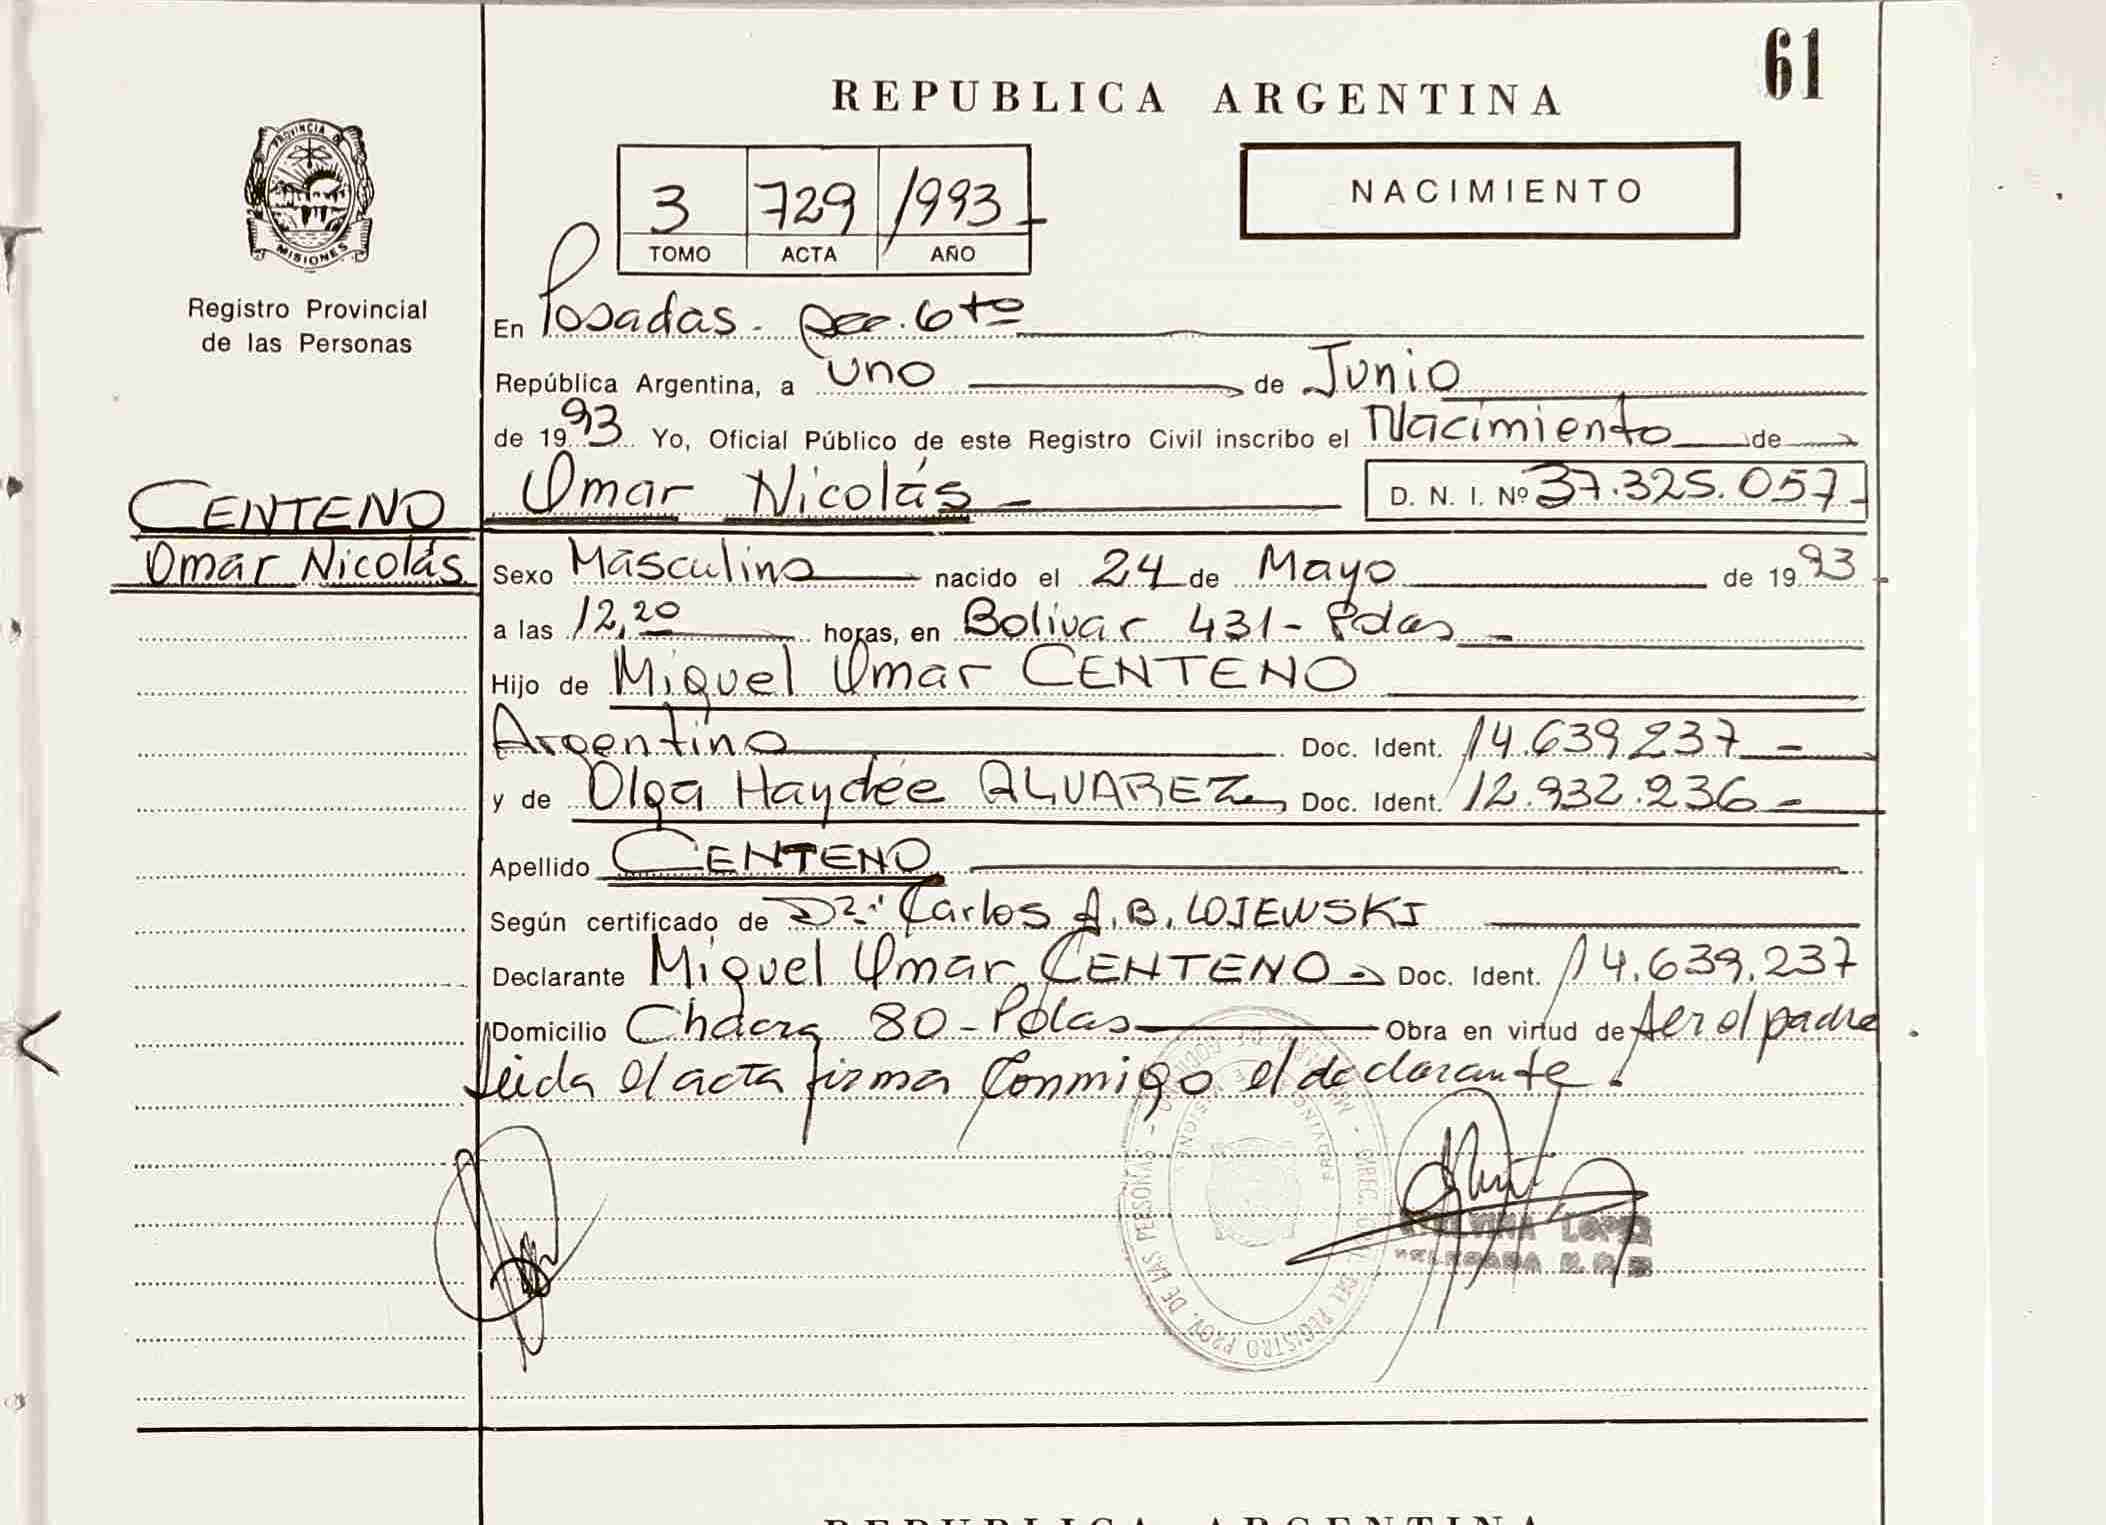 61
REPUBLICA ARGENTINA
NACIMIENTO
3 729 1993
TOMO ACTA AÑO
PROVINCIA DE
MISIONES
Registro Provincial
de las Personas
En Posadas. Secc. 6to
República Argentina, a uno de Junio
de 1993 Yo, Oficial Público de este Registro Civil inscribo el Nacimiento de
CENTENO
Omar Nicolás D. N. I. Nº 37.325.057
Omar Nicolás
Sexo Masculino nacido el 24 de Mayo de 1993
a las 12,20 horas, en Bolivar 431 - Pdas
Hijo de Miguel Omar CENTENO
Argentino Doc. Ident. 14.639.237
y de Olga Haydée ALVAREZ, Doc. Ident. 12.932.236
Apellido CENTENO
Según certificado de Dr. Carlos A. B. LOJEWSKI
Declarante Miguel Omar CENTENO Doc. Ident. 14.639.237
Domicilio Chacra 80 - Pdas Obra en virtud de ser el padre
Leida el acta firma conmigo el declarante.
DEL REGISTRO PROV. DE LAS PERSONAS
LOPEZ
REPUBLICA ARGENTINA